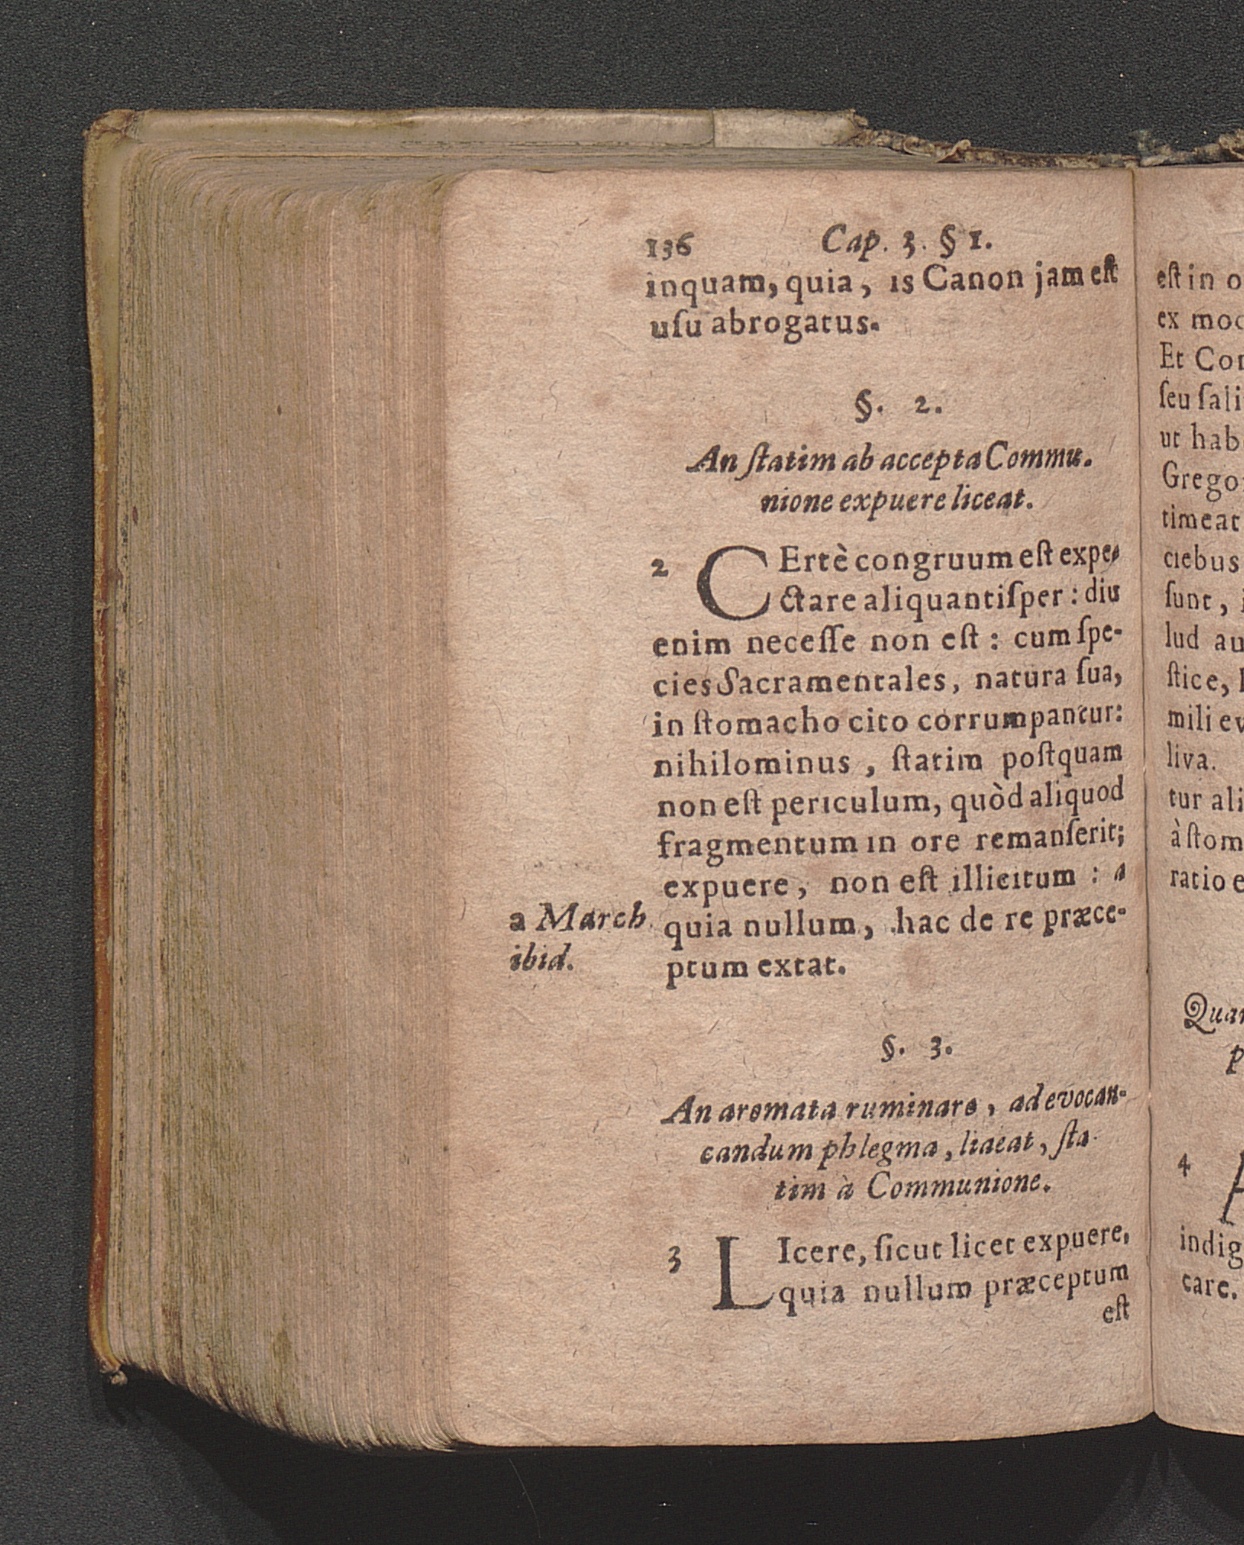 136 Cap. 3. § 1.
inquam, quia, is Canon jam eſt
uſu abrogatus.
§. 2.
An ſtatim ab accepta Commu.
nione expuere liceat.
2 CErtè congruum eſt expe-
ctare aliquantiſper : diu
enim neceſſe non eſt : cum ſpe-
cies Sacramentales, natura ſua,
in ſtomacho cito corrumpantur:
nihilominus , ſtatim poſtquam
non eſt periculum, quòd aliquod
fragmentum in ore remanſerit;
expuere, non eſt illicitum : a
a March. quia nullum, hac de re præce-
ibid. ptum extat.
§. 3.
An aromata ruminare, ad evocan-
candum phlegma, liaeat, ſta-
tim à Communione.
3 LIcere, ſicut licet expuere,
quia nullum præceptum
eſt
eſt in
ex
Et
ſeu
ut
timeat
ciebus
ſunt,
lud
ſtice,
mili
liva.
tur
à
ratio
4
care.